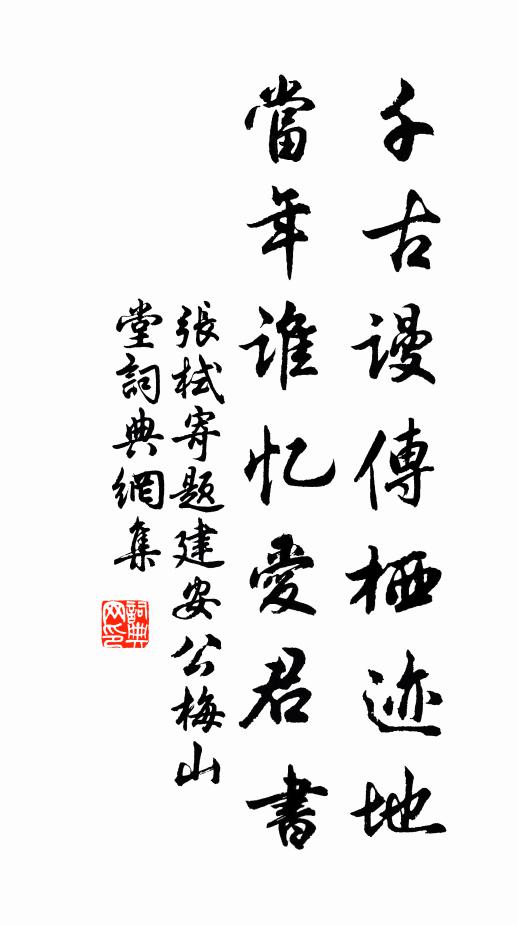 千古谩傳栖迹地
當年谁忆愛君書
張栻寄题建安公梅山
堂詞典網集
詞典网印